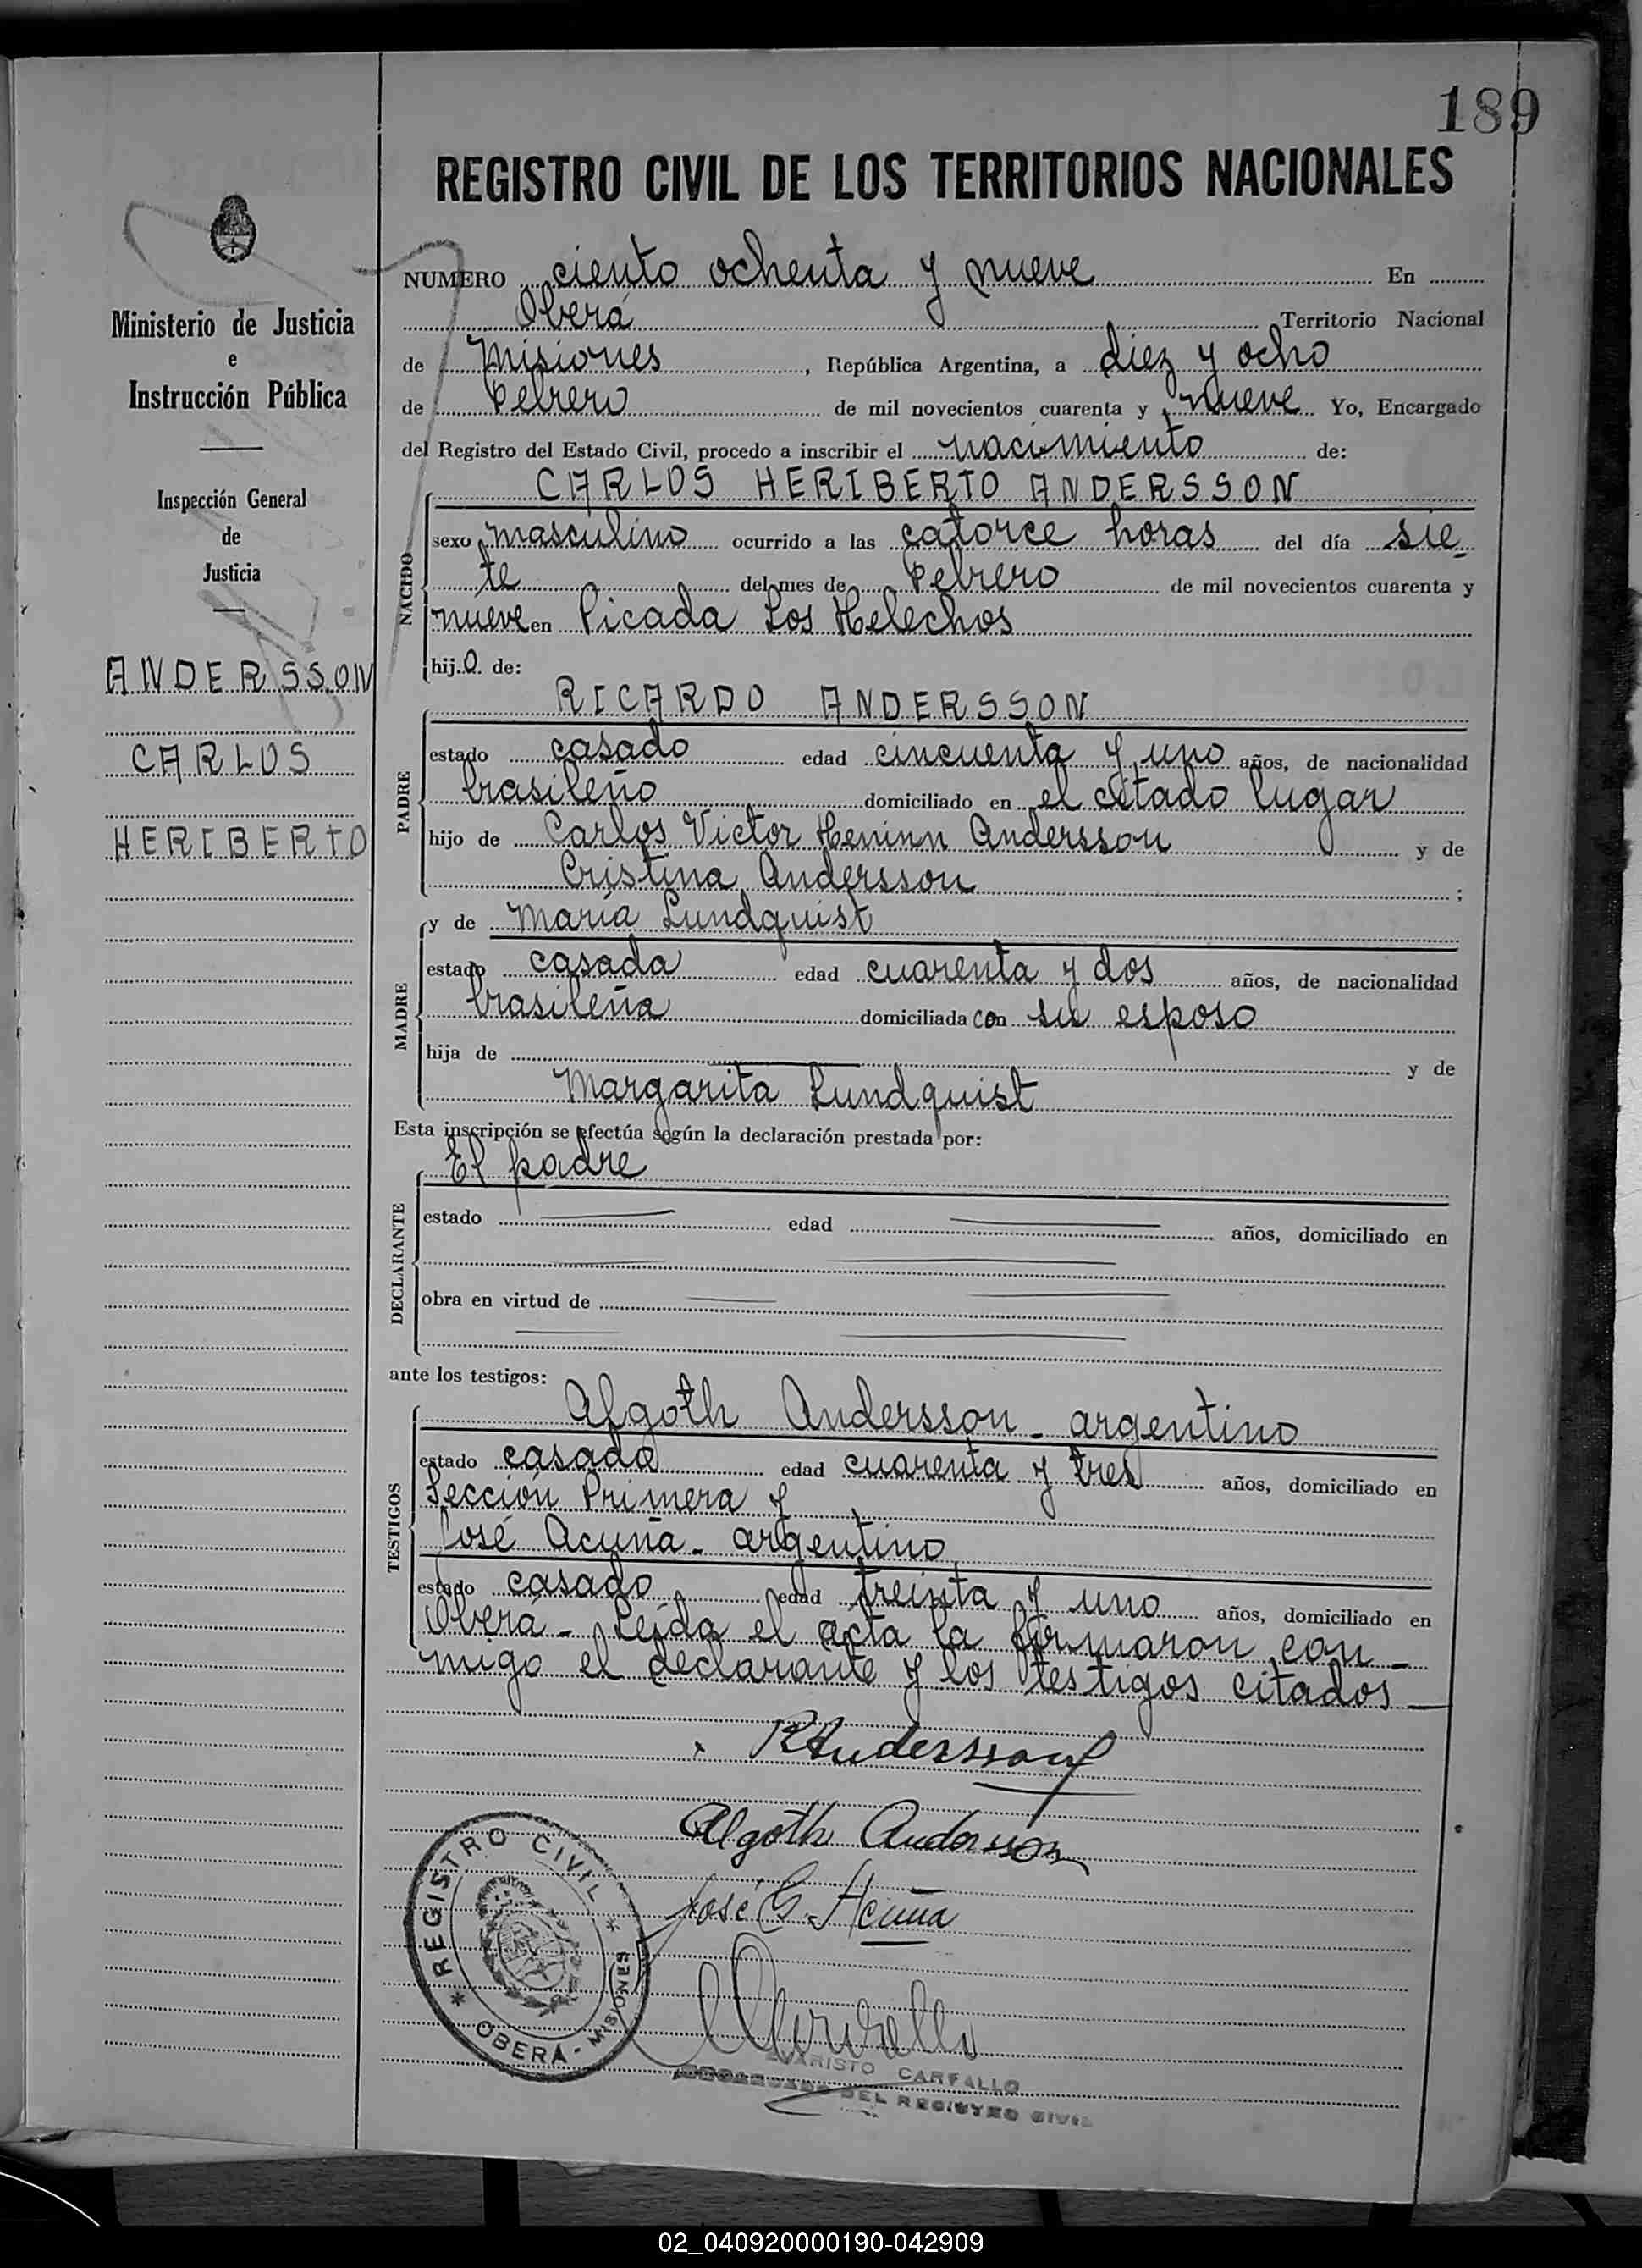 189
REGISTRO CIVIL DE LOS TERRITORIOS NACIONALES
Ministerio de Justicia
e
Instrucción Pública
Inspección General
de
Justicia
ANDERSSON
CARLOS
HERIBERTO
NUMERO ciento ochenta y nueve En
Oberá Territorio Nacional
de Misiones, República Argentina, a diez y ocho
de Febrero de mil novecientos cuarenta y nueve Yo, Encargado
del Registro del Estado Civil, procedo a inscribir el nacimiento de:
CARLOS HERIBERTO ANDERSSON
NACIDO
sexo masculino ocurrido a las catorce horas del día sie-
te del mes de Febrero de mil novecientos cuarenta y
nueve en Picada Los Helechos
hij.o. de:
RICARDO ANDERSSON
PADRE
estado casado edad cincuenta y uno años, de nacionalidad
brasileño domiciliado en el citado lugar
hijo de Carlos Victor Heninn Andersson y de
Cristina Andersson ;
y de María Lundquist
MADRE
estado casada edad cuarenta y dos años, de nacionalidad
brasileña domiciliada con su esposo
hija de y de
Margarita Lundquist
Esta inscripción se efectúa según la declaración prestada por:
El padre
DECLARANTE
estado edad años, domiciliado en
obra en virtud de
ante los testigos:
Algoth Andersson - argentino
TESTIGOS
estado casado edad cuarenta y tres años, domiciliado en
Sección Primera y
José Acuña - argentino
estado casado edad treinta y uno años, domiciliado en
Oberá - Leída el acta la firmaron con-
migo el declarante y los testigos citados
RAndersson
Algoth Andersson
José G. Acuña
REGISTRO CIVIL
OBERÁ - MISIONES
EVARISTO CARFALLO
ENCARGADO DEL REGISTRO CIVIL
02_040920000190-042909